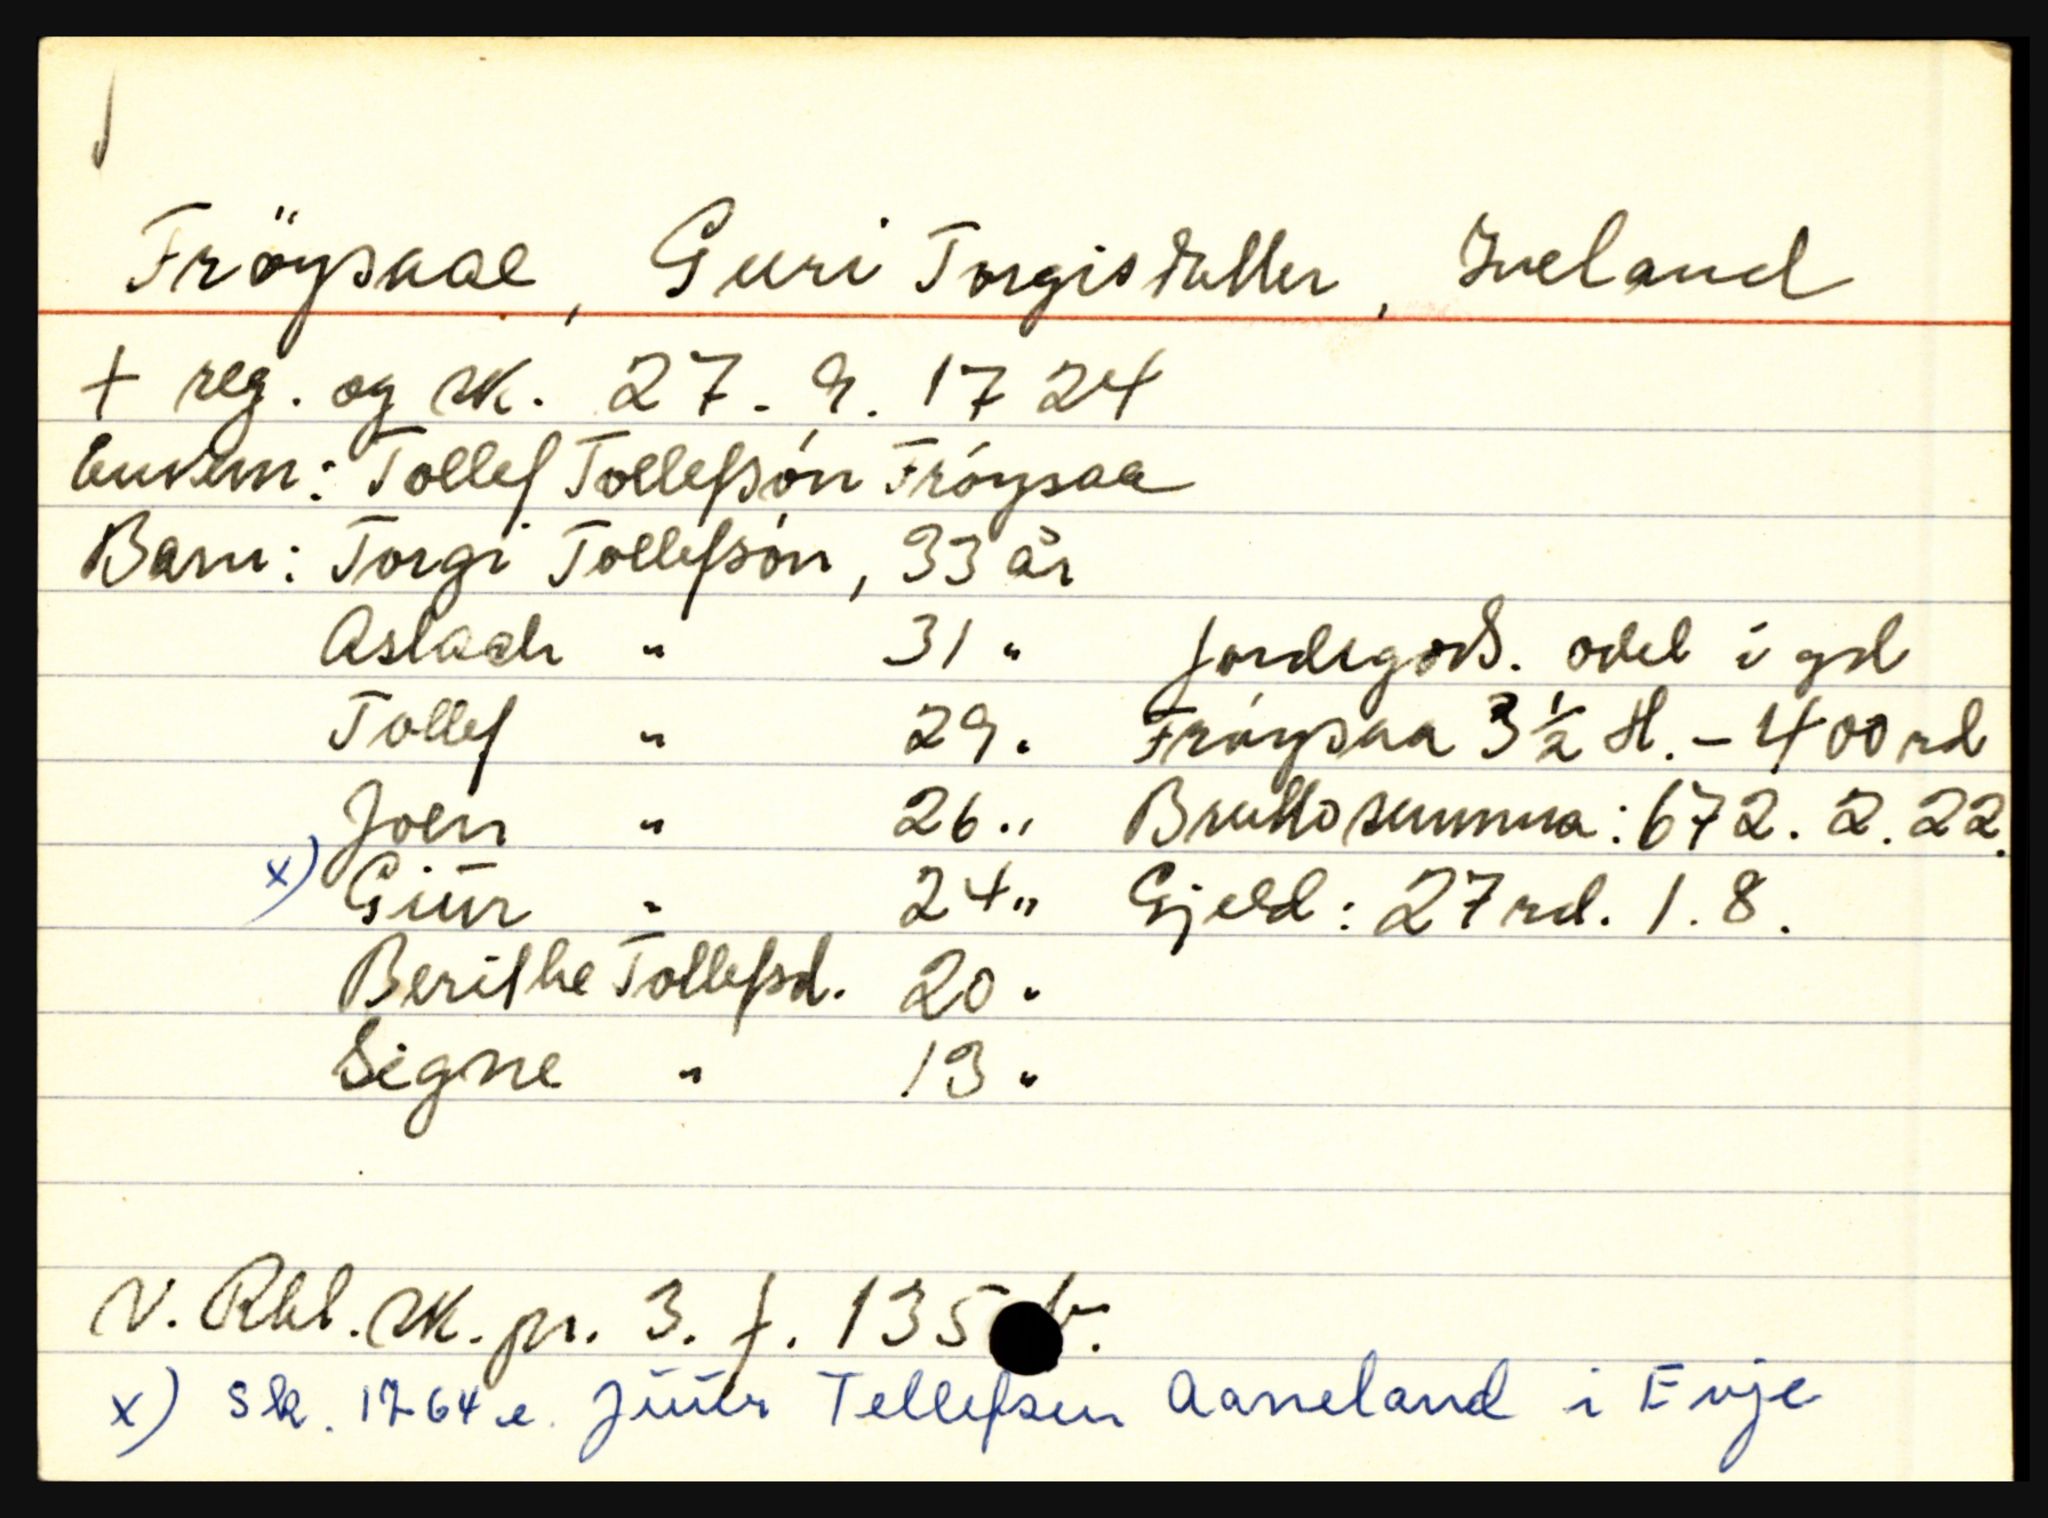 Fröysaae, Guri Torgisdatter, Iveland
+ reg. og sk. 27. 9. 1724
Enkem: Tollef Tollefsón Fróysaa
Barn: Torgi Tollefsón, 33 år
Aslach " 31 " Jordegods. odel i gd
Tollef " 29 " Fróysaa 3 ½ H. - 400 rd
Joen " 26 " Bruttosumma: 672. 2. 22.
x) Giür " 24 " Gjeld: 27 rd. 1. 8.
Berithe Tollefsd. 20 "
Signe " 13 "
N. Rbl. sk. pr. 3. f. 135 b.
x) Sk. 1764 e. Jüür Tellefsen Aaneland i Evje